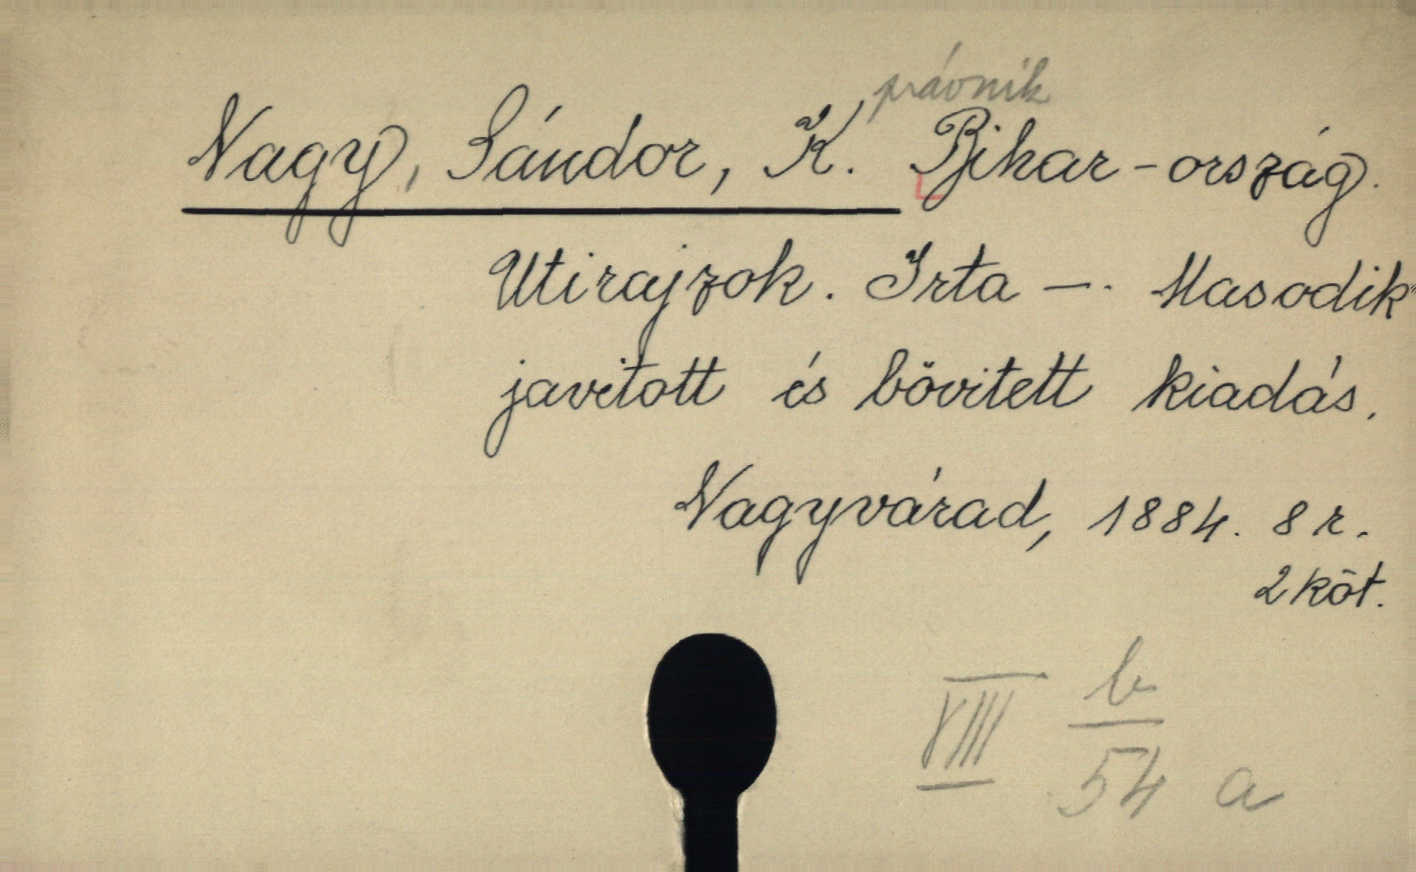 právnik
Nagy, Sándor, K. Bihar-ország.
Utirajzok. Irta —. Masodik
javitott és bővitett kiadás.
Nagyvárad, 1884. 8 r.
2 köt.
VIII b/54 a